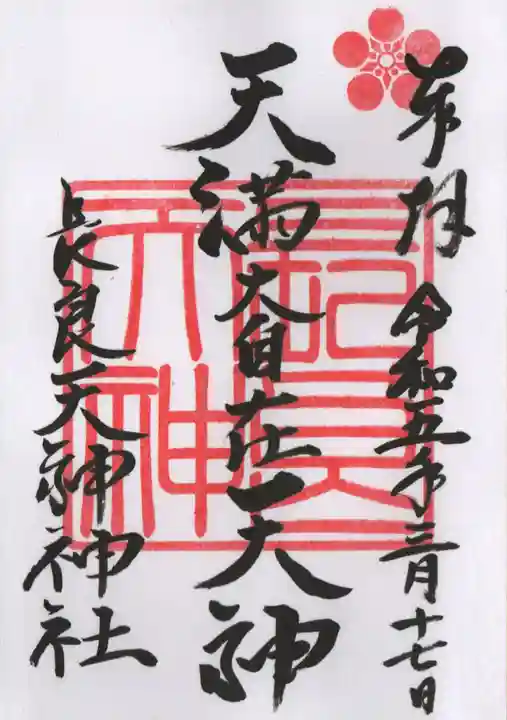 奉拝 令和五年三月十七日
天満大自在天神
長良天神神社